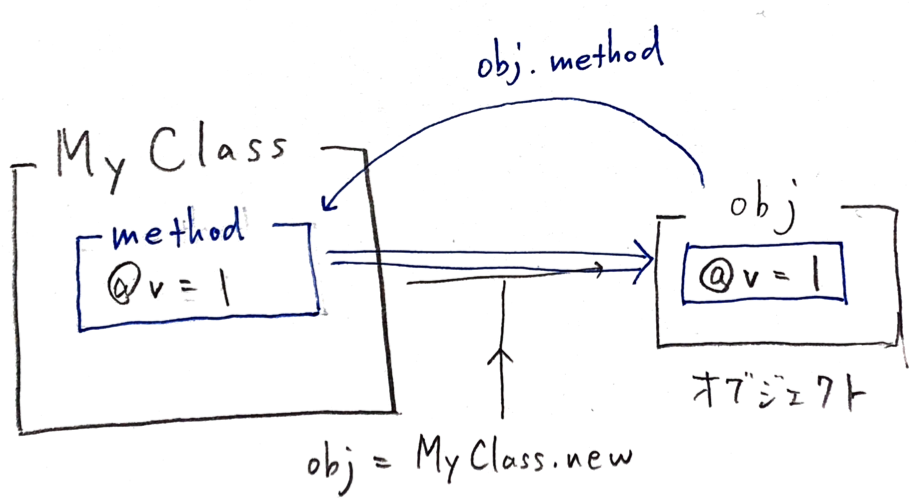 obj. method
My Class
method
@v = 1
obj
@v = 1
オブジェクト
obj = MyClass.new